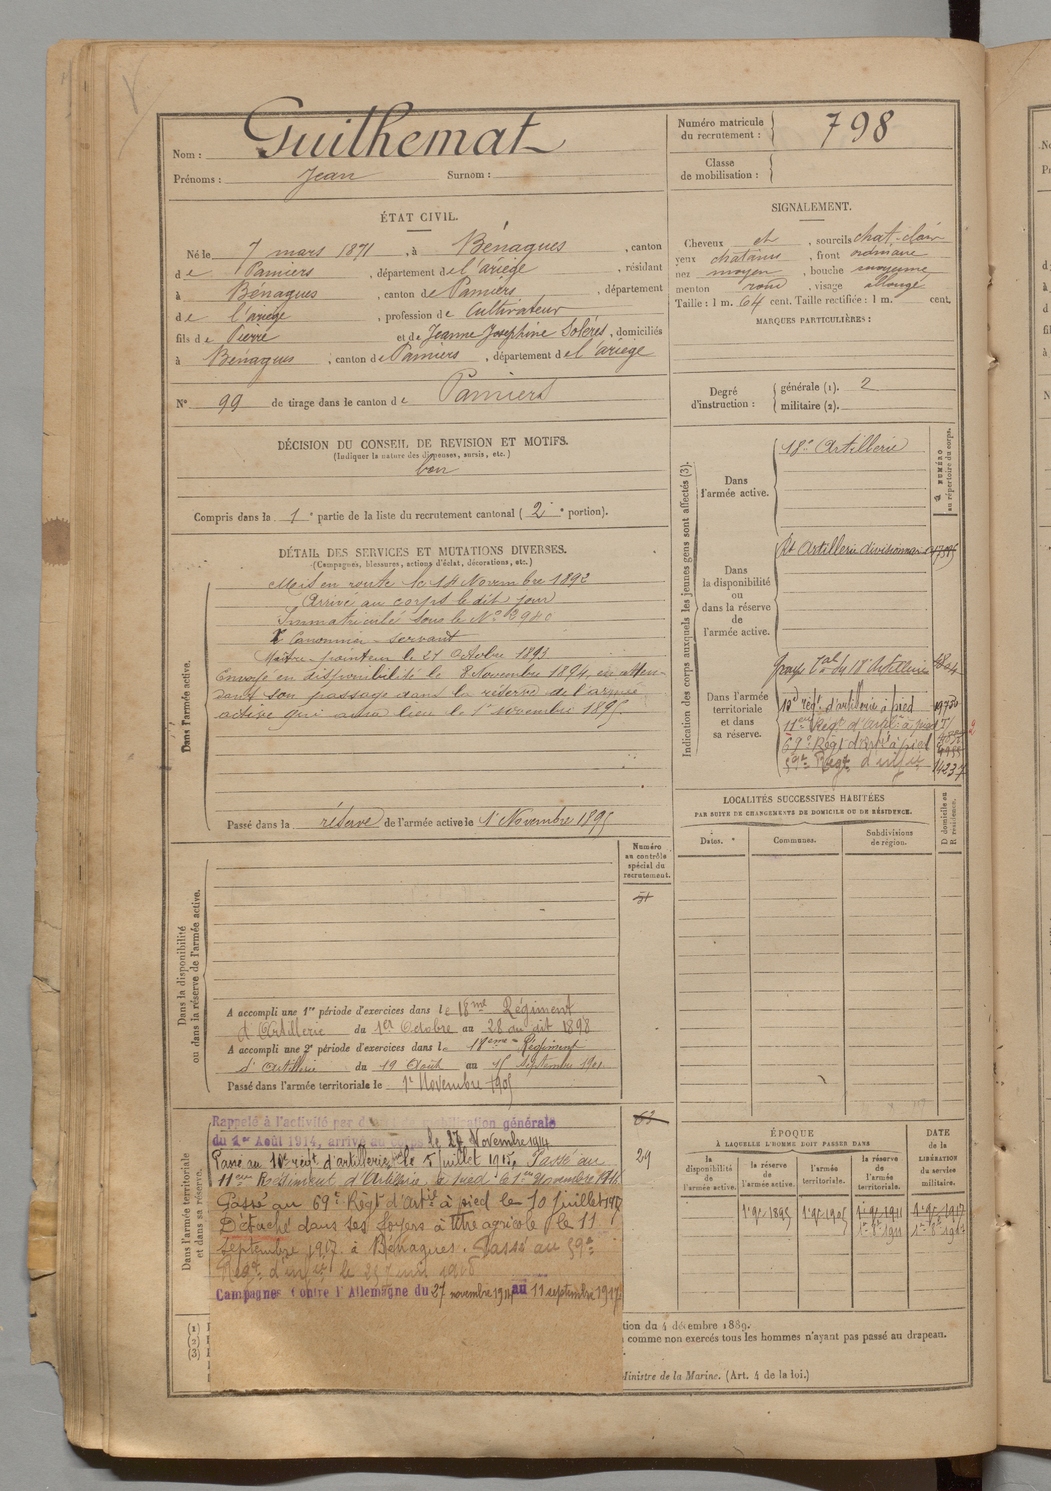 Nom : Guilhemat
Prénoms : Jean Surnom :
Numéro matricule du recrutement : 798
Classe de mobilisation :
ÉTAT CIVIL.
Né le 7 mars 1871, à Bénagues, canton
de Pamiers, département de l'ariège, résidant
à Bénagues, canton de Pamiers, département
de l'ariège, profession de Cultivateur
fils de Pierre et de Jeanne Josephine Solères, domiciliés
à Bénagues, canton de Pamiers, département de l'ariège
N° 99 de tirage dans le canton de Pamiers
SIGNALEMENT.
Cheveux et, sourcils chat-clair
yeux chatains, front ordinaire
nez moyen, bouche moyenne
menton rond, visage allongé
Taille : 1 m. 64 cent. Taille rectifiée : 1 m. cent.
MARQUES PARTICULIÈRES :
Degré d'instruction : générale (1). 2
militaire (2).
DÉCISION DU CONSEIL DE REVISION ET MOTIFS.
(Indiquer la nature des dispenses, sursis, etc.)
bon
Compris dans la 1e partie de la liste du recrutement cantonal (2e portion).
DÉTAIL DES SERVICES ET MUTATIONS DIVERSES.
(Campagnes, blessures, actions d'éclat, décorations, etc.)
Dans l'armée active.
Mis en route le 14 Novembre 1892
Arrivé au corps le dit jour
Immatriculé sous le N° 3940
Canonnier-servant
Maître-pointeur le 21 Octobre 1893
Envoyé en disponibilité le 8 Novembre 1894, en atten-
dant son passage dans la réserve de l'armée
active qui aura lieu le 1er novembre 1895
Passé dans la réserve de l'armée active le 1er Novembre 1895
Indication des corps auxquels les jeunes gens sont affectés (3).
NUMÉRO au répertoire du corps.
Dans l'armée active.
18e Artillerie
Dans la disponibilité ou dans la réserve de l'armée active.
Rt Artillerie divisionnaire
Dans l'armée territoriale et dans sa réserve.
Groupe Tal du 18e Artillerie
10e régt d'artillerie à pied
11eme Régt d'Artie à pied
69e Régt d'Artie à pied
59e Régt d'infie 14237
LOCALITÉS SUCCESSIVES HABITÉES
PAR SUITE DE CHANGEMENTS DE DOMICILE OU DE RÉSIDENCE.
Dates. Communes. Subdivisions de région. D domicile ou R résidence.
Dans la disponibilité ou dans la réserve de l'armée active.
Numéro au contrôle spécial du recrutement.
A accompli une 1re période d'exercices dans le 18me Régiment
d'Artillerie du 1er Octobre au 28 du dit 1898
A accompli une 2e période d'exercices dans le 18eme Régiment
d'Artillerie du 19 Août au 15 Septembre 1901
Passé dans l'armée territoriale le 1er Novembre 1905
Dans l'armée territoriale et dans sa réserve.
63
29
Rappelé à l'activité par mobilisation générale
du 2 Août 1914, arrivé au corps le 27 Novembre 1914
Passé au 10e régt d'artillerie le 5 juillet 1915. Passé au
11eme Régiment d'Artillerie à pied le 1er Novembre 1915
Passé au 69e Régt d'Artie à pied le 10 juillet 1917
Détaché dans ses foyers à titre agricole le 11
septembre 1917 à Bénagues. Passé au 59e
Régt d'infie le 25 mai 1918
Campagnes Contre l'Allemagne du 27 novembre 1914 au 11 septembre 1917
ÉPOQUE
À LAQUELLE L'HOMME DOIT PASSER DANS
la disponibilité de l'armée active.
la réserve de l'armée active.
l'armée territoriale.
la réserve de l'armée territoriale.
DATE de la LIBÉRATION du service militaire.
1er 9e 1895 1er 9e 1905 1er 9e 1911 1er 9e 1917
(1)
(2)
(3)
tion du 4 décembre 1889.
comme non exercés tous les hommes n'ayant pas passé au drapeau.
Ministre de la Marine. (Art. 4 de la loi.)